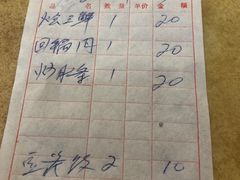 品名 数量 单价 金额
烩三鲜 1 20
回锅肉 1 20
1 20
豆浆饭 2 10